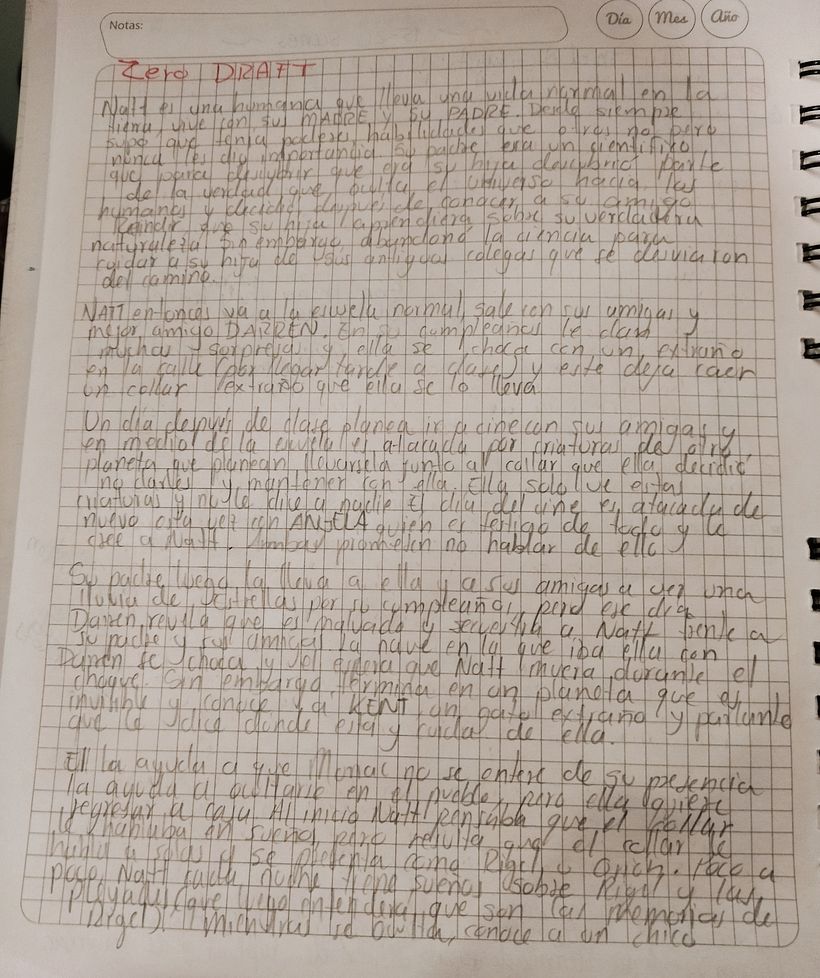 Notas:
Día Mes Año
Zero DRAFT
Natt es una humana que lleva una vida normal en la
tierra, vive con sus MADRE y su PADRE. Desde siempre
supo que tenía poderes, habilidades que otros no pero
nunca les dio importancia. Su padre era un científico,
que para descubrir que era su hija descubrió parte
de la verdad que oculta el universo hacia los
humanos y decidió después de conocer a su amigo
que su hija aprendiera sobre su verdadera
naturaleza. Sin embargo, abandonó la ciencia para
cuidar a su hija de sus antiguos colegas que se desviaron
del camino.
NATT entonces va a la escuela normal, sale con sus amigas y
mejor amigo DARREN. En su cumpleaños le dan
muchas sorpresas y ella se choca con un extraño
en la calle (por llegar tarde a clases) y este deja caer
un collar extraño que ella se lo lleva.
Un día después de clase planea ir a cine con sus amigas y
en medio de la escuela es atacada por criaturas de otro
planeta que planean llevarsela junto al collar que ella decidió
no darles y mantener con ella. Ella solo ve estas
criaturas y no le dice a nadie. El día del cine es atacada de
nuevo esta vez con ANGELA quien es testigo de todo y le
cree a Natt. Ambas prometen no hablar de ello.
Su padre luego la lleva a ella y a sus amigas a ver una
lluvia de estrellas por su cumpleaños, pero ese día
Darren revela que es malvado y secuestra a Natt frente a
su padre y sus amigas. La nave en la que iba ella con
Darren se choca y se espera que Natt muera durante el
choque. Sin embargo, termina en un planeta que es
invisible y conoce a KENT, un gato extraño y parlante
que le dice donde está y cuida de ella.
El la ayuda a que no se entere de su presencia
la ayuda a ocultarse en el pueblo, pero ella quiere
regresar a casa. Al inicio Natt pensaba que el collar
le hablaba en sueños pero resulta que el collar le
habla a solas y se presenta como Rigel, Poco a
poco, Natt cada noche tiene sueños sobre Rigel y las
(que luego entenderá que son las memorias de
Rigel). Mientras se oculta, conoce a un chico